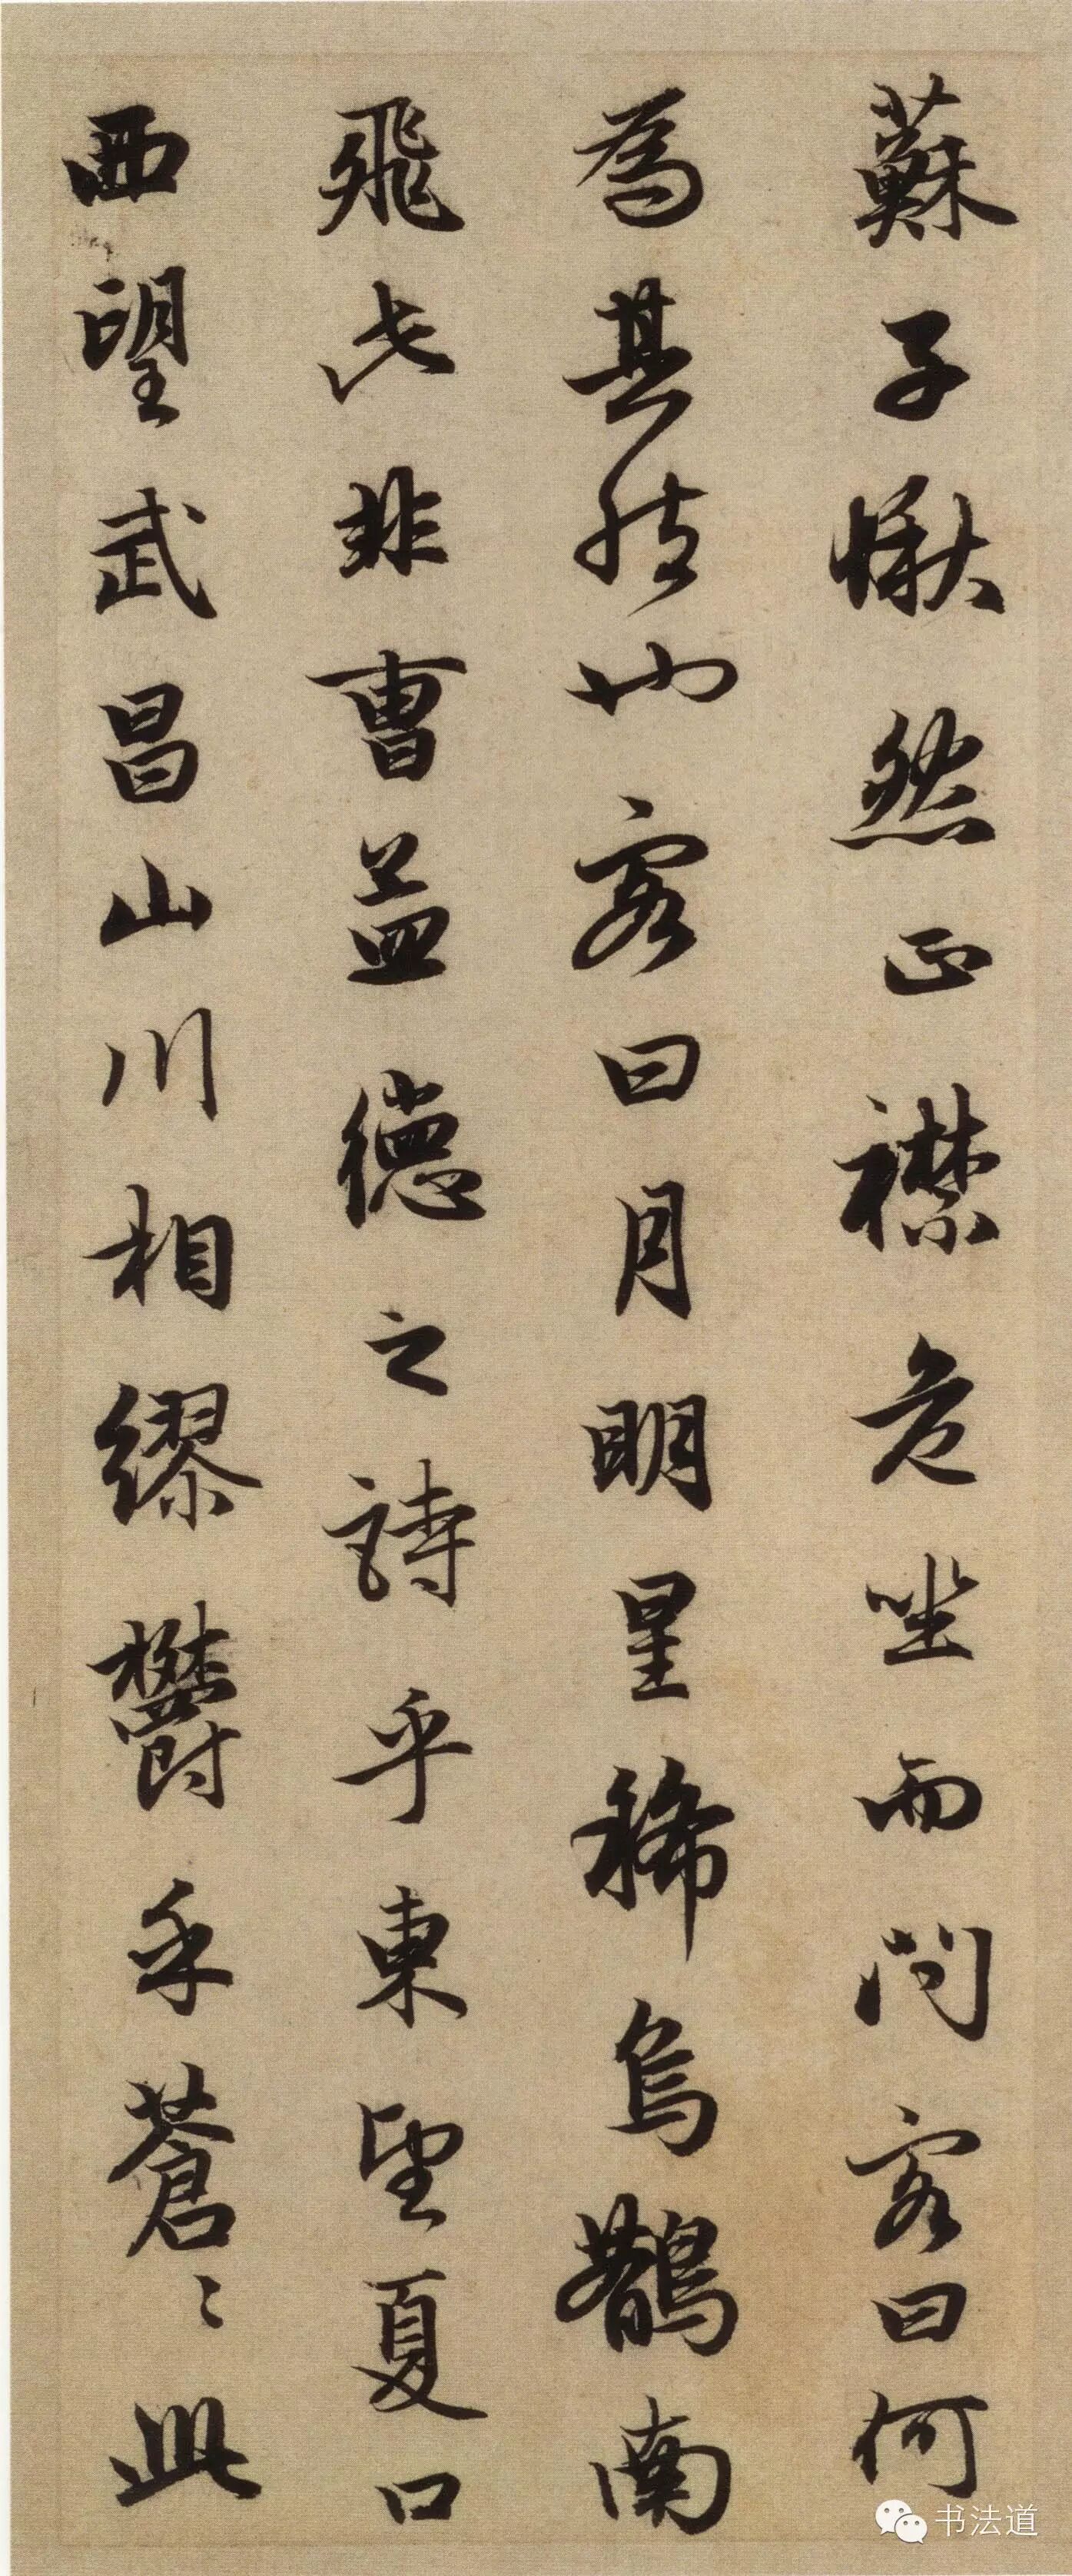 蘇子愀然正襟危坐而問客曰何
為其然也客曰月明星稀烏鵲南
飛此非曹益德之詩乎東望夏口
西望武昌山川相繆鬱乎蒼〻此
书法道